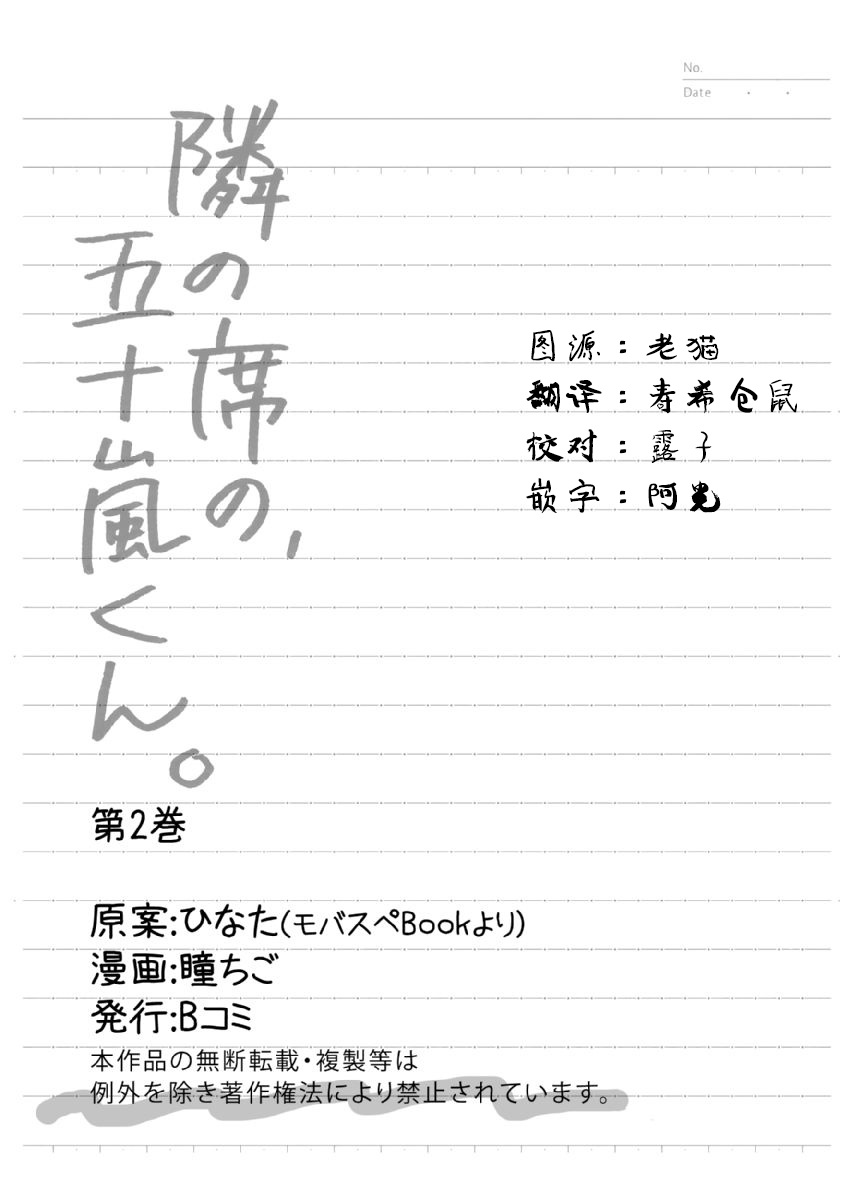 No.
Date
隣の席の、
五十嵐くん。
图源：老猫
翻译：寿希仓鼠
校对：露子
嵌字：阿光
第2巻
原案:ひなた(モバスペBookより)
漫画:瞳ちご
発行:Bコミ
本作品の無断転載・複製等は
例外を除き著作権法により禁止されています。